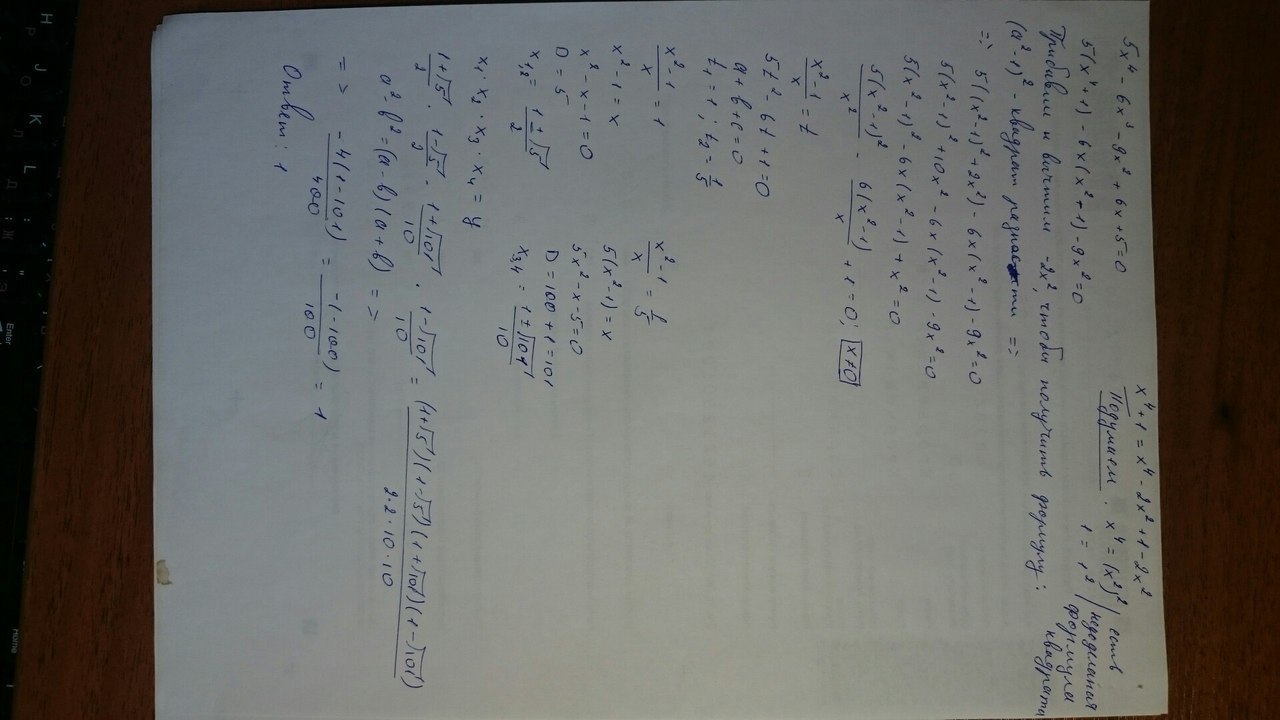 5x⁴ - 6x³ - 9x² + 6x + 5 = 0
x⁴ + 1 = x⁴ - 2x² + 1 - 2x²
5(x⁴+1) - 6x(x²+1) - 9x² = 0
Подумаем. x⁴ = (x²)² / есть
1 = 1² / недоделанная
формула
квадрата
Прибавим и вычтим -2x², чтобы получить формулу:
(a²-1)² - квадрат разности =>
=> 5((x²-1)² + 2x²) - 6x(x²-1) - 9x² = 0
5(x²-1)² + 10x² - 6x(x²-1) - 9x² = 0
5(x²-1)² - 6x(x²-1) + x² = 0
5(x²-1)²/x² - 6(x²-1)/x + 1 = 0; x≠0
x²-1/x = t
5t² - 6t + 1 = 0
a + b + c = 0
t₁ = 1; t₂ = 1/5
x²-1/x = 1
x² - 1 = x
x² - x - 1 = 0
D = 5
x₁,₂ = 1±√5/2
x²-1/x = 1/5
5(x²-1) = x
5x² - x - 5 = 0
D = 100 + 1 = 101
x₃,₄ = 1±√101/10
x₁ · x₂ · x₃ · x₄ = y
1+√5/2 · 1-√5/2 · 1+√101/10 · 1-√101/10 = (1+√5)(1-√5)(1+√101)(1-√101)/2·2·10·10
a² - b² = (a-b)(a+b) =>
=> -4(1-101)/400 = -(-100)/100 = 1
Ответ: 1
H
J
K
L
Enter
Home